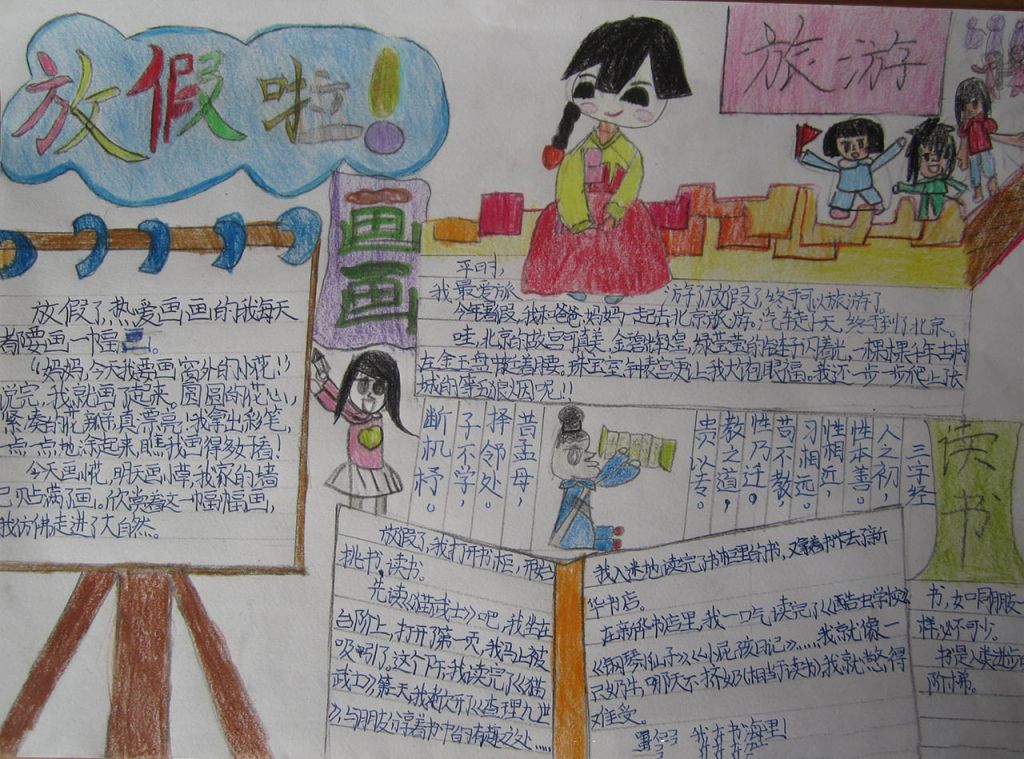 放假啦!
放假了,热爱画画的我每天
都要画一幅画。
“妈妈,今天我要画窗外的小花!”
说完,我就画了起来,圆圆的花心,
紧凑的花瓣真漂亮!我拿出彩笔,
一点一点地涂起来,瞧我画得多好看!
今天画小花,明天画小草,我家的墙
已贴满了画。欣赏着这一幅幅画,
我仿佛走进了大自然。
画画
旅游
平时,
我最爱旅游了,放假了,终于可以旅游了。
今年暑假,我和爸爸、妈妈一起去北京旅游。汽车走十天,终于到了北京。
哇,北京的故宫可真美,金碧辉煌,
城的第五烽火因呢!!
三字经
人之初,
性本善。
性相近,
习相远。
苟不教,
性乃迁。
教之道,
贵以专。
昔孟母,
择邻处。
子不学,
断机杼。
读书
放假了,我打开书柜,开始
挑书,读书。
先读《猫武士》吧,我坐在
台阶上,打开了第一页,我马上被
吸引了。这个下午,我读完了《猫
武士》,第二天,我又打开《查理九世》
与朋友们享着书中的有趣之处……
我入迷地读完了书柜里的书,又拿着书卡去了新
华书店。
在新华书店里,我一口气读完了《酷虫学校》
《钢琴小仙子》、《小屁孩日记》……,我就像一
只奶牛,哪天不挤奶(相当于读书),我就憋得
难受。
暑假 我在书海里
书,如同朋友一
样必不可少。
书是人类进步的
阶梯。